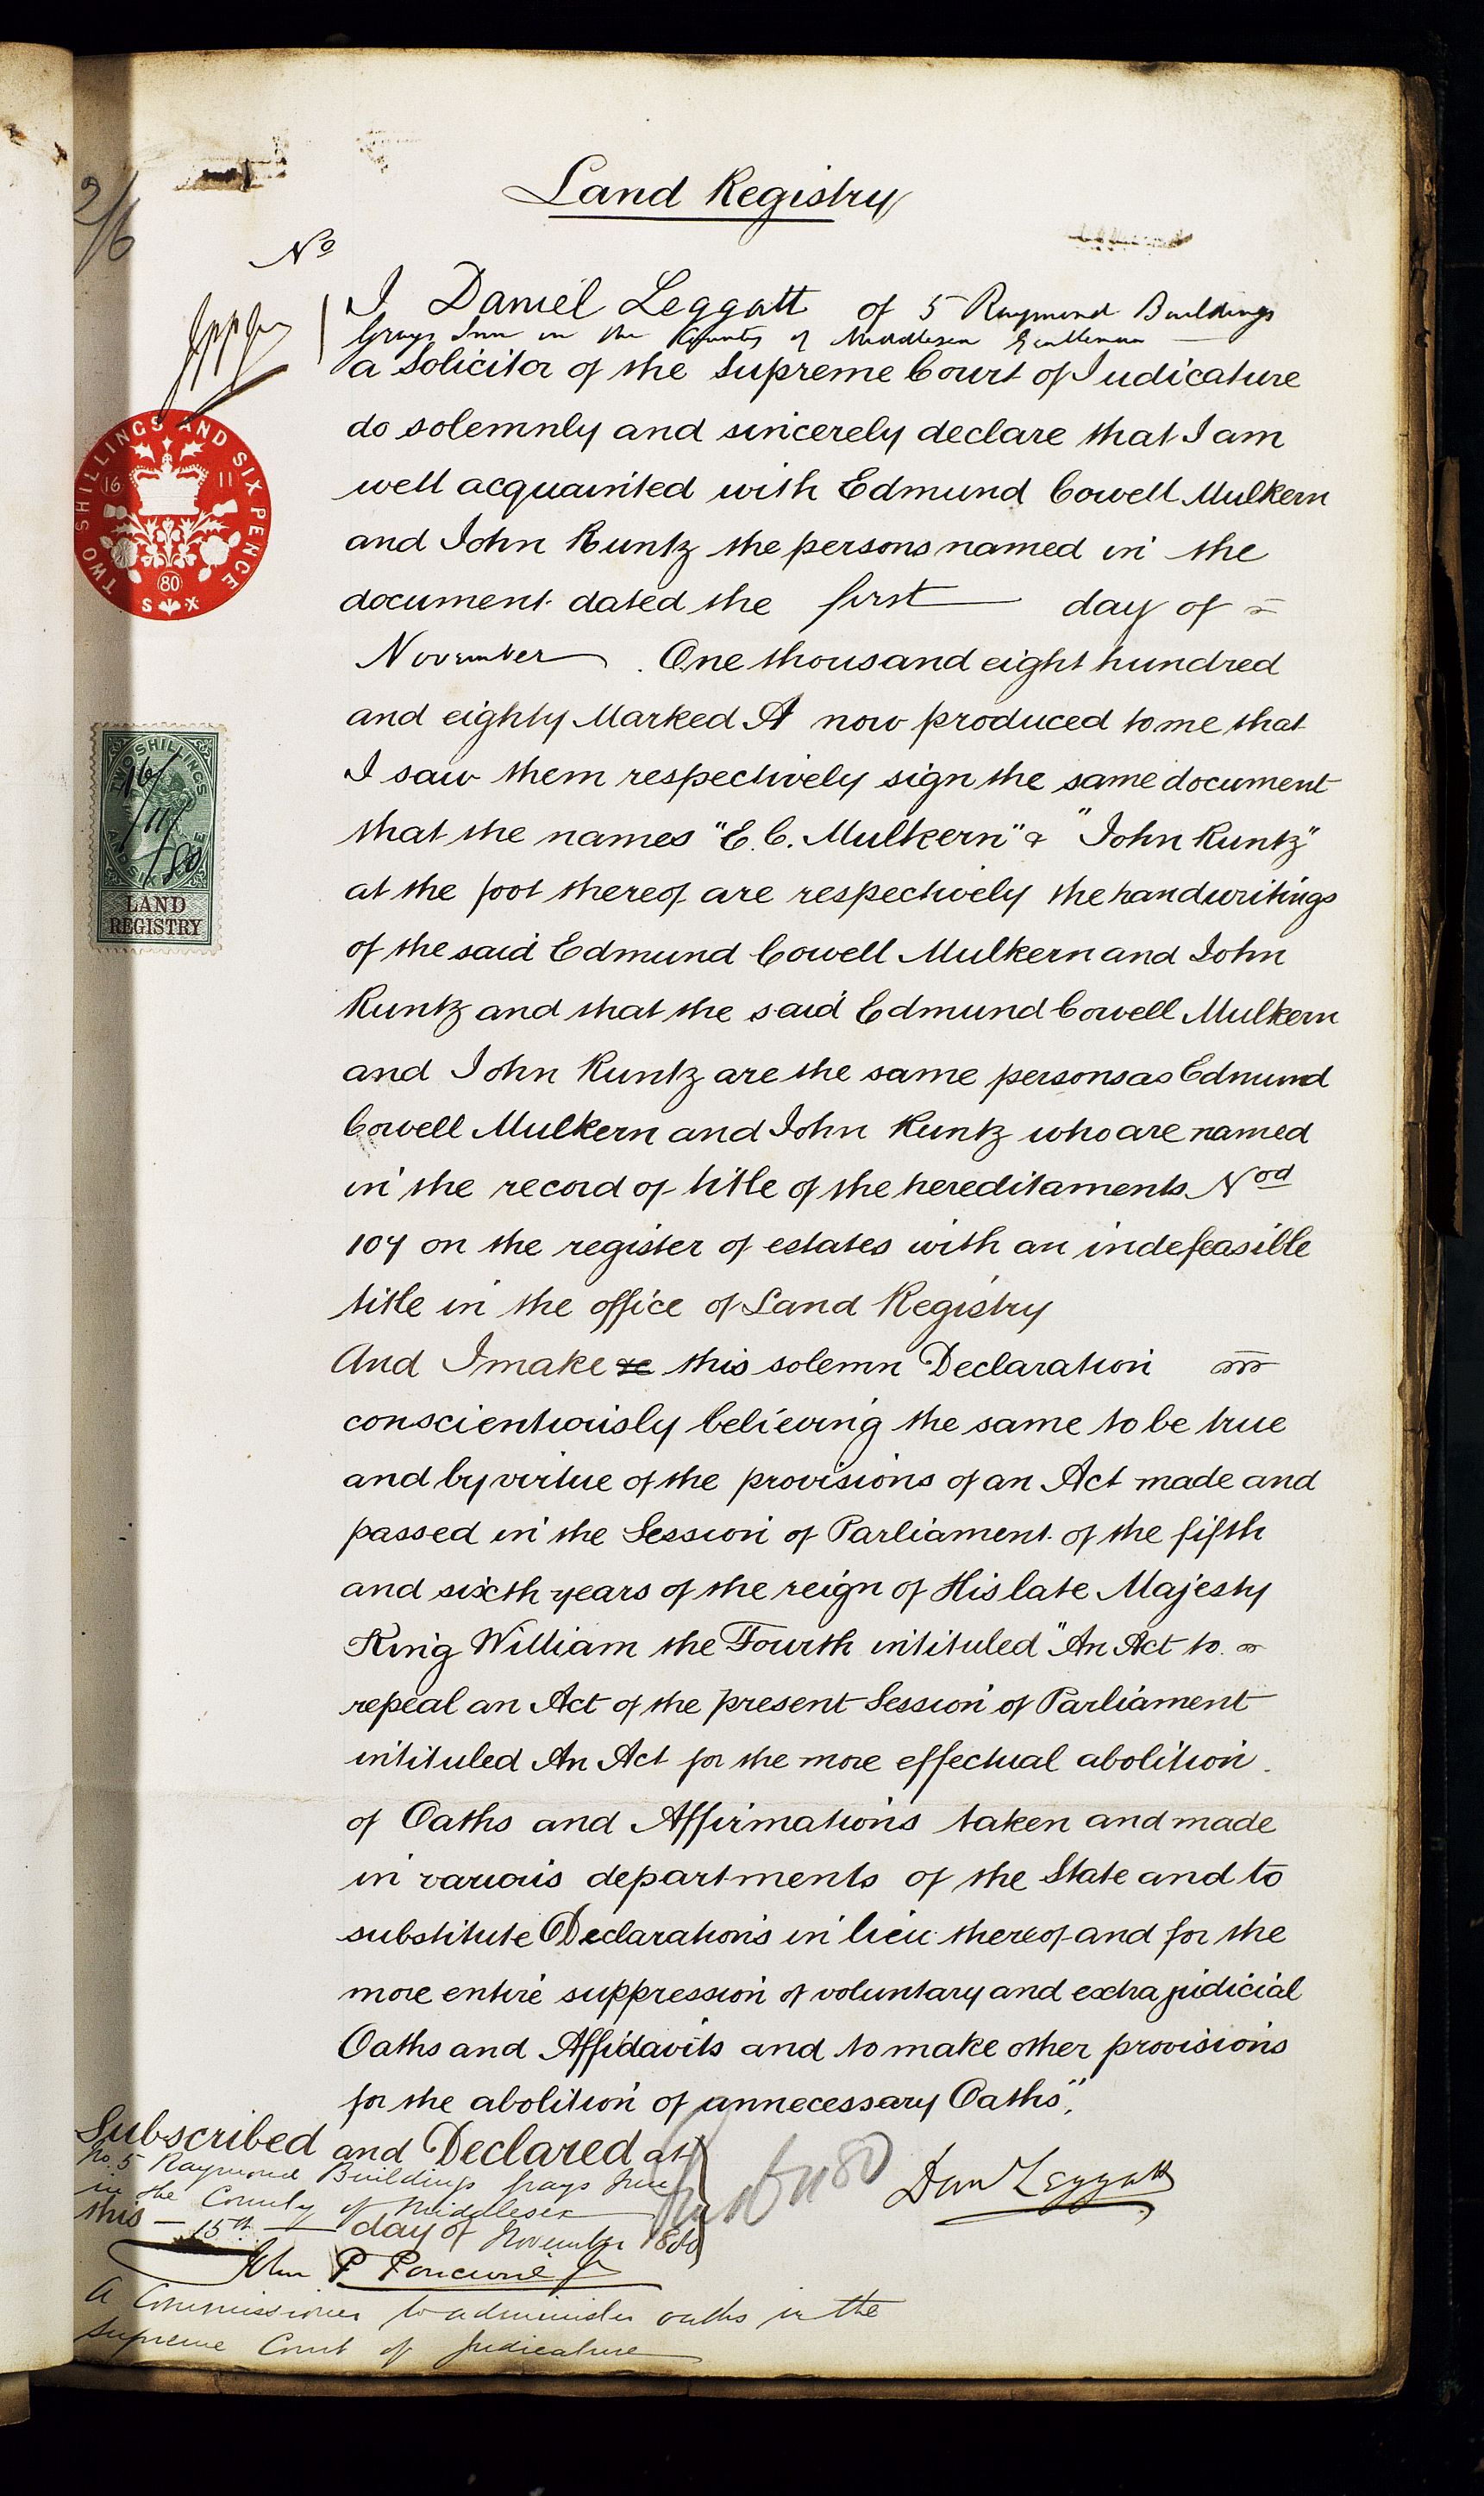 2/6
Land Registry
No
I Daniel Leggatt of 5 Raymond Buildings
Grays Inn in the County of Middlesex Gentleman
a Solicitor of the Supreme Court of Judicature
do solemnly and sincerely declare that I am
well acquainted with Edmund Cowell Mulkern
and John Runtz the persons named in the
document dated the first day of
November One thousand eight hundred
and eighty Marked A now produced to me that
I saw them respectively sign the same document
that the names "E. C. Mulkern" & "John Runtz"
at the foot thereof are respectively the handwritings
of the said Edmund Cowell Mulkern and John
Runtz and that the said Edmund Cowell Mulkern
and John Runtz are the same persons as Edmund
Cowell Mulkern and John Runtz who are named
in the record of title of the hereditaments Nod
104 on the register of estates with an indefeasible
title in the office of Land Registry
And I make this solemn Declaration
conscientiously believing the same to be true
and by virtue of the provisions of an Act made and
passed in the Session of Parliament of the fifth
and sixth years of the reign of His late Majesty
King William the Fourth intituled "An Act to
repeal an Act of the present Session of Parliament
intituled An Act for the more effectual abolition
of Oaths and Affirmations taken and made
in various departments of the State and to
substitute Declarations in lieu thereof and for the
more entire suppression of voluntary and extra judicial
Oaths and Affidavits and to make other provisions
for the abolition of unnecessary Oaths".
Subscribed and Declared at
No. 5 Raymond Buildings Grays Inn
in the County of Middlesex
this 15th day of November 1880
Danl Leggatt
John P.
A Commissioner to administer oaths in the
Supreme Court of Judicature
TWO SHILLINGS AND SIX PENCE
16 11
80
TWO SHILLINGS AND SIX PENCE
16/11/80
LAND
REGISTRY